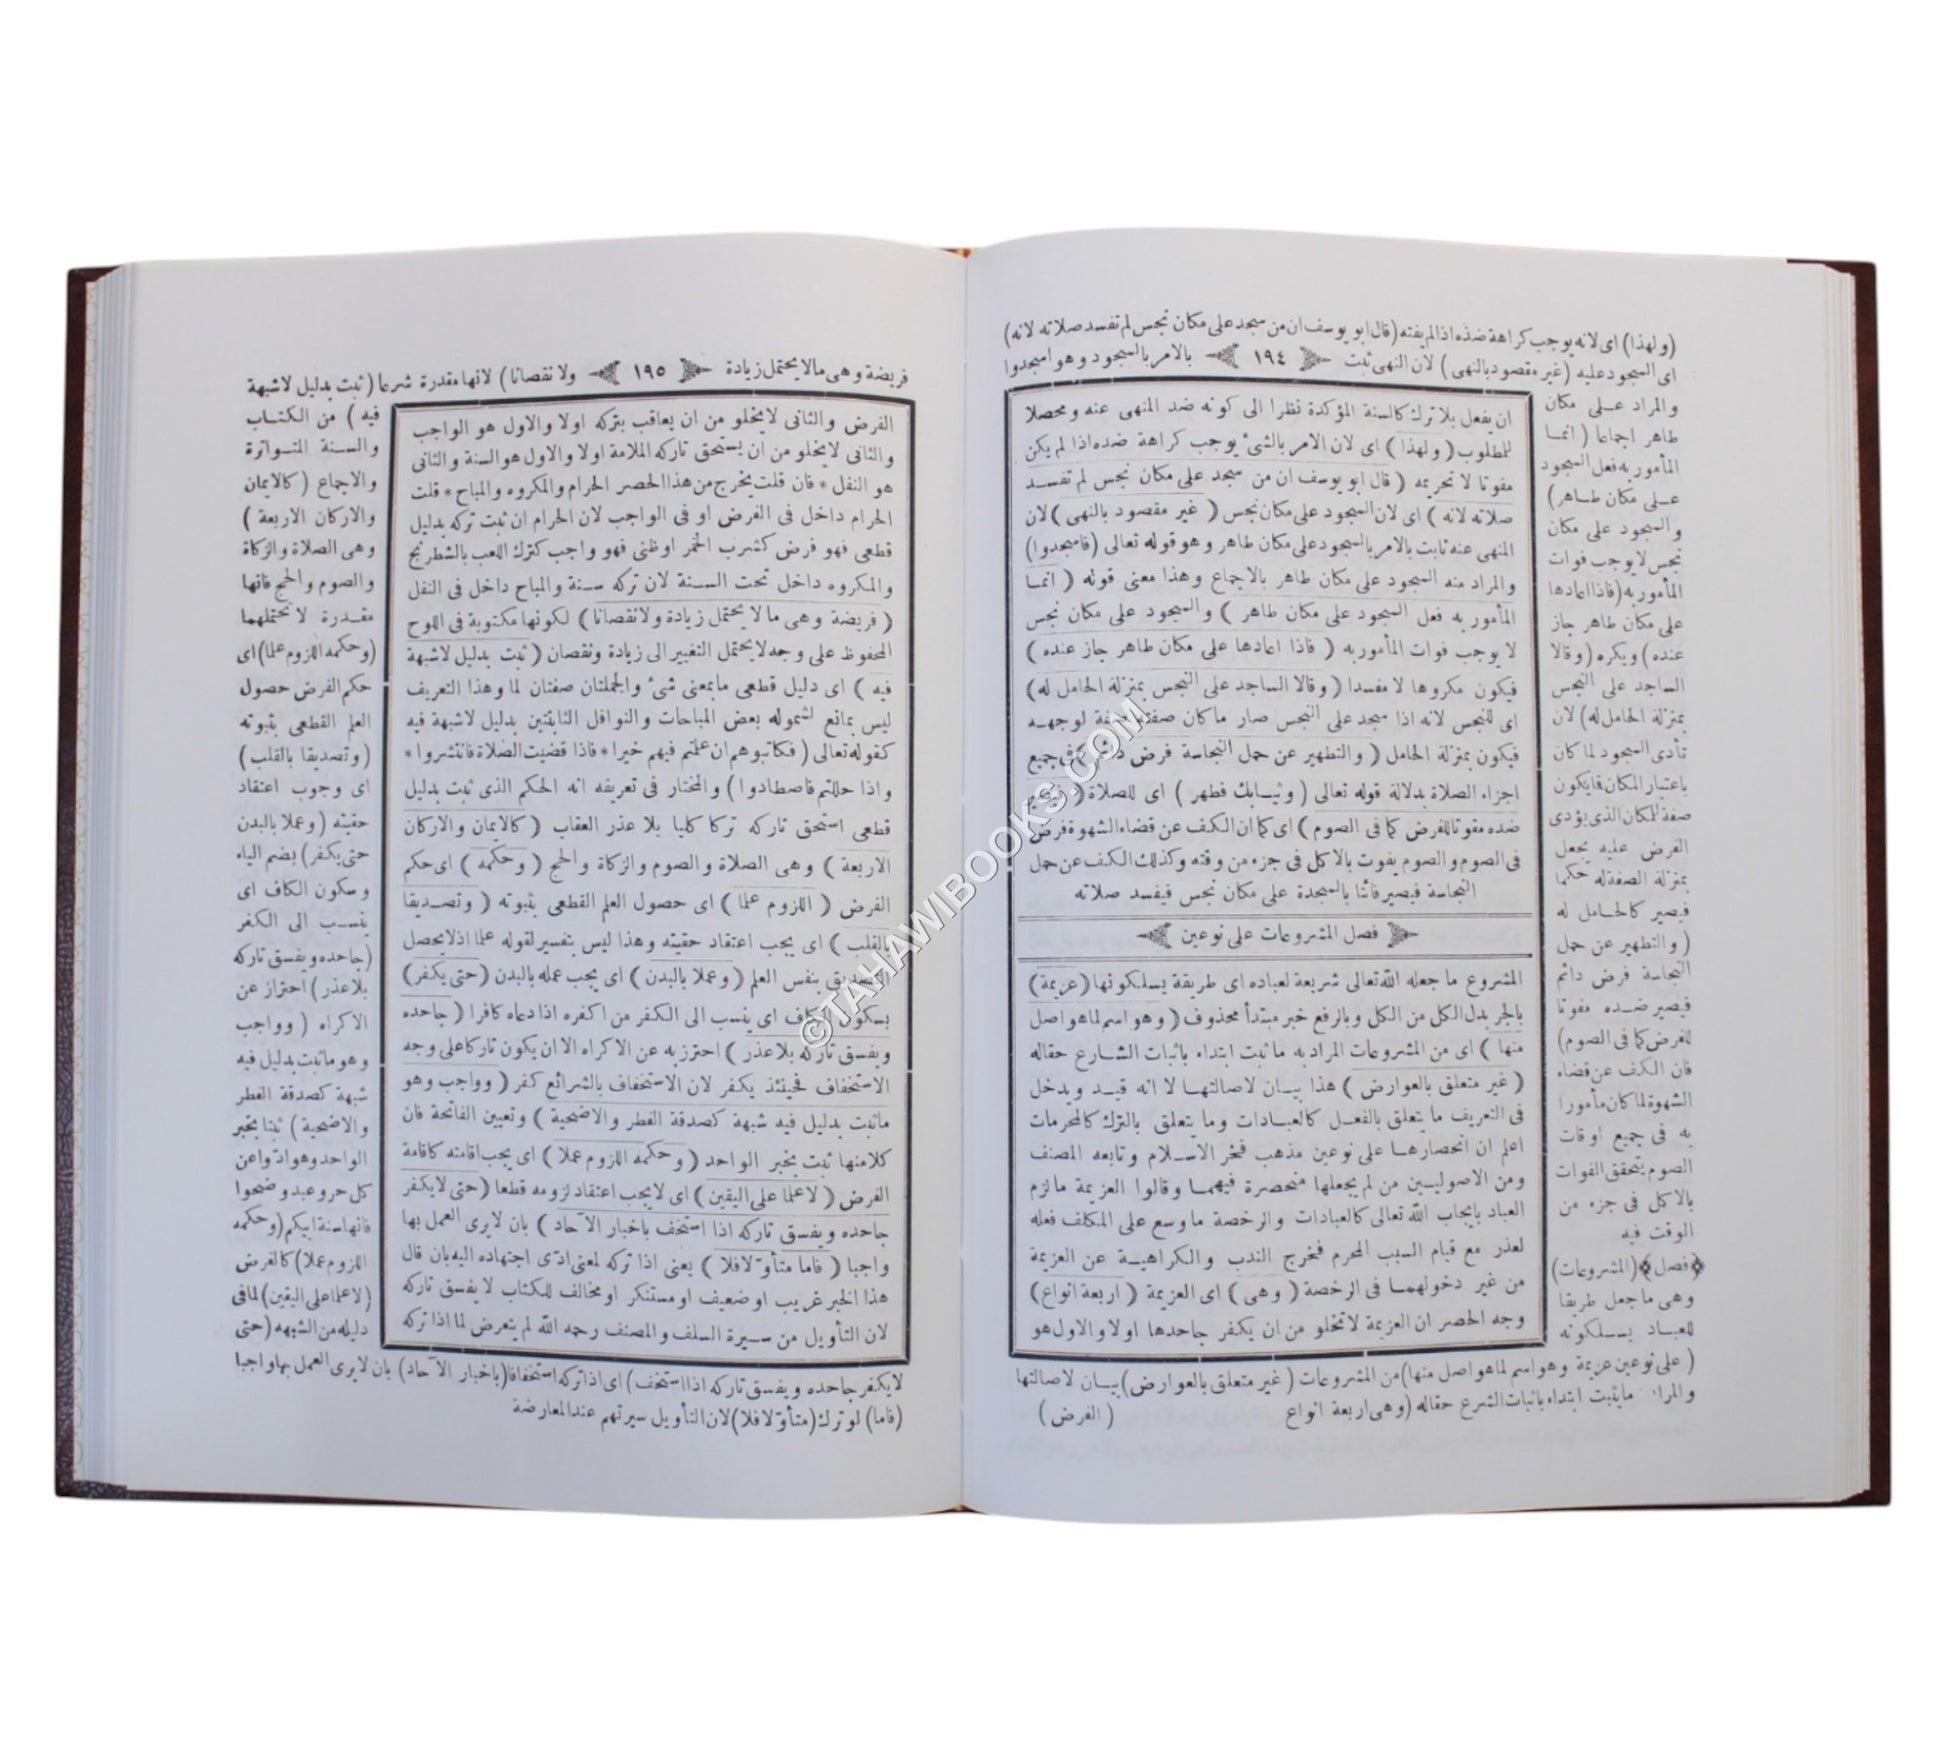 (ولهذا) اى لانه يوجب كراهة ضده اذا لم يفته (قال ابو يوسف ان من سجد على مكان نجس لم تفسد صلاته لانه)
اى السجود عليه (غير مقصود بالنهى) لان النهى ثبت ١٩٤ بالامر بالسجود وهو اسجدوا
والمراد على مكان
طاهر اجماعا (انما
المأمور به فعل السجود
على مكان طاهر)
والسجود على مكان
نجس لا يوجب فوات
المأمور به (فاذا اعادها
على مكان طاهر جاز
عنده) ويكره (وقالا
الساجد على النجس
بمنزلة الحامل له) لان
تأدى السجود لما كان
باعتبار المكان فايكون
صفة للمكان الذى يؤدى
الفرض عليه يجعل
بمنزلة الصفة له حكما
فيصير كالحامل له
(والتطهير عن حمل
النجاسة فرض دائم
فيصير ضده مفوتا
للفرض كما فى الصوم)
فان الكف عن قضاء
الشهوة لما كان مأمورا
به فى جميع اوقات
الصوم يتحقق الفوات
بالاكل فى جزء من
الوقت فيه
﴿فصل﴾ (المشروعات)
وهى ما جعل طريقا
للعباد يسلكونه
ان يفعل بلا ترك كالسنة المؤكدة نظرا الى كونه ضد المنهى عنه ومحصلا
للمطلوب (ولهذا) اى لان الامر بالشئ يوجب كراهة ضده اذا لم يكن
مفوتا لا تحريمه (قال ابو يوسف ان من سجد على مكان نجس لم تفسد
صلاته لانه) اى لان السجود على مكان نجس (غير مقصود بالنهى) لان
المنهى عنه ثابت بالامر بالسجود على مكان طاهر وهو قوله تعالى (فاسجدوا)
والمراد منه السجود على مكان طاهر بالاجماع وهذا معنى قوله (انما
المأمور به فعل السجود على مكان طاهر) والسجود على مكان نجس
لا يوجب فوات المأمور به (فاذا اعادها على مكان طاهر جاز عنده)
فيكون مكروها لا مفسدا (وقالا الساجد على النجس بمنزلة الحامل له)
اى للنجس لانه اذا سجد على النجس صار ما كان صفة لوجهه
فيكون بمنزلة الحامل (والتطهير عن حمل النجاسة فرض دائم) فى جميع
اجزاء الصلاة بدلالة قوله تعالى (وثيابك فطهر) اى للصلاة (فيصير
ضده مفوتا للفرض كما فى الصوم) اى كما ان الكف عن قضاء الشهوة فرض
فى الصوم والصوم يفوت بالاكل فى جزء من وقته وكذلك الكف عن حمل
النجاسة فيصير فائتا بالسجدة على مكان نجس فيفسد صلاته
فصل المشروعات على نوعين
المشروع ما جعله الله تعالى شريعة لعباده اى طريقة يسلكونها (عزيمة)
بالجر بدل الكل من الكل وبالرفع خبر مبتدأ محذوف (وهو اسم لما هو اصل
منها) اى من المشروعات المراد به ما ثبت ابتداء باثبات الشارع حقاله
(غير متعلق بالعوارض) هذا بيان لاصالتها لا انه قيد ويدخل
فى التعريف ما يتعلق بالفعل كالعبادات وما يتعلق بالترك كالمحرمات
اعلم ان انحصارها على نوعين مذهب فخر الاسلام وتابعه المصنف
ومن الاصوليين من لم يجعلها منحصرة فيهما وقالوا العزيمة ما لزم
العباد بايجاب الله تعالى كالعبادات والرخصة ما وسع على المكلف فعله
لعذر مع قيام السبب المحرم فخرج الندب والكراهية عن العزيمة
من غير دخولهما فى الرخصة (وهى) اى العزيمة (اربعة انواع)
وجه الحصر ان العزيمة لا تخلو من ان يكفر جاحدها اولا والاول هو
(على نوعين عزيمة وهو اسم لما هو اصل منها) من المشروعات (غير متعلق بالعوارض) بيان لاصالتها
والمراد ما يثبت ابتداء باثبات الشرع حقاله (وهى اربعة انواع (الفرض)
فريضة وهى ما لا يحتمل زيادة ١٩٥ ولا نقصانا) لانها مقدرة شرعا (ثبت بدليل لا شبهة
الفرض والثانى لا يخلو من ان يعاقب بتركه اولا والاول هو الواجب
والثانى لا يخلو من ان يستحق تاركه الملامة اولا والاول هو السنة والثانى
هو النفل * فان قلت يخرج من هذا الحصر الحرام والمكروه والمباح * قلت
الحرام داخل فى الفرض او فى الواجب لان الحرام ان ثبت تركه بدليل
قطعى فهو فرض كشرب الخمر او ظنى فهو واجب كترك اللعب بالشطرنج
والمكروه داخل تحت السنة لان تركه سنة والمباح داخل فى النفل
(فريضة وهى ما لا يحتمل زيادة ولا نقصانا) لكونها مكتوبة فى اللوح
المحفوظ على وجه لا يحتمل التغيير الى زيادة ونقصان (ثبت بدليل لا شبهة
فيه) اى دليل قطعى ما بمعنى شئ والجملتان صفتان لما وهذا التعريف
ليس بمانع لشموله بعض المباحات والنوافل الثابتتين بدليل لا شبهة فيه
كقوله تعالى (فكاتبوهم ان علمتم فيهم خيرا * فاذا قضيت الصلاة فانتشروا *
واذا حللتم فاصطادوا) والمختار فى تعريفه انه الحكم الذى ثبت بدليل
قطعى استحق تاركه تركا كليا بلا عذر العقاب (كالايمان والاركان
الاربعة) وهى الصلاة والصوم والزكاة والحج (وحكمه) اى حكم
الفرض (اللزوم علما) اى حصول العلم القطعى بثبوته (وتصديقا
بالقلب) اى يجب اعتقاد حقيته وهذا ليس بتفسير لقوله علما اذ لا يحصل
التصديق بنفس العلم (وعملا بالبدن) اى يجب عمله بالبدن (حتى يكفر)
بسكون الكاف اى ينسب الى الكفر من اكفره اذا دعاه كافرا (جاحده
ويفسق تاركه بلا عذر) احترز به عن الاكراه الا ان يكون تاركا على وجه
الاستخفاف فحينئذ يكفر لان الاستخفاف بالشرائع كفر (وواجب وهو
ما ثبت بدليل فيه شبهة كصدقة الفطر والاضحية) وتعيين الفاتحة فان
كلا منها ثبت بخبر الواحد (وحكمه اللزوم عملا) اى يجب اقامته كاقامة
الفرض (لا علما على اليقين) اى لا يجب اعتقاد لزومه قطعا (حتى لا يكفر
جاحده ويفسق تاركه اذا استخف باخبار الآحاد) بان لا يرى العمل بها
واجبا (فاما متأولا فلا) يعنى اذا تركه لمعنى ادى اجتهاده اليه بان قال
هذا الخبر غريب او ضعيف او مستنكر او مخالف للكتاب لا يفسق تاركه
لان التأويل من سيرة السلف والمصنف رحمه الله لم يتعرض لما اذا تركه
فيه) من الكتاب
والسنة المتواترة
والاجماع (كالايمان
والاركان الاربعة)
وهى الصلاة والزكاة
والصوم والحج فانها
مقدرة لا تحتملهما
(وحكمه اللزوم علما) اى
حكم الفرض حصول
العلم القطعى بثبوته
(وتصديقا بالقلب)
اى وجوب اعتقاد
حقيته (وعملا بالبدن
حتى يكفر) بضم الياء
وسكون الكاف اى
ينسب الى الكفر
(جاحده ويفسق تاركه
بلا عذر) احتراز عن
الاكراه (وواجب
وهو ما ثبت بدليل فيه
شبهة كصدقة الفطر
والاضحية) ثبتا بخبر
الواحد وهو ادوا عن
كل حر وعبد وضحوا
فانها سنة ابيكم (وحكمه
اللزوم عملا) كالفرض
(لا علما على اليقين) لما فى
دليله من الشبهه (حتى
لا يكفر جاحده ويفسق تاركه اذا استخف) اى اذا تركه استخفافا (باخبار الآحاد) بان لا يرى العمل بها واجبا
(فاما) لو ترك (متأولا فلا) لان التأويل سيرتهم عند المعارضة
©TAHAWIBOOKS.COM